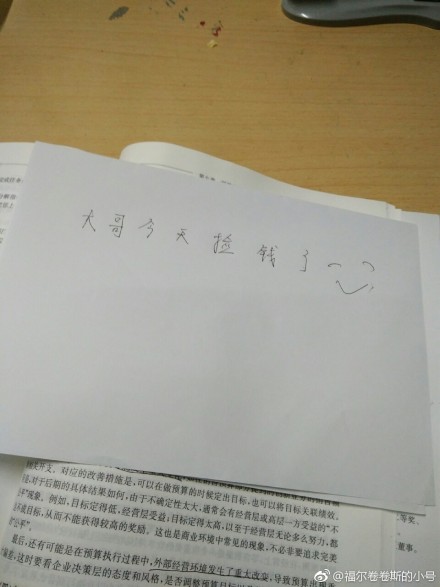 大哥今天捡钱了
对应的改善措施是,可以在做预算的时候定出目标,也可以将目标关联绩效,
对于后期的具体结果如何,由于不确定性太大,通常会有经营层或高层一方受益的“不
平”现象。例如,目标定得低,经营层受益;目标定得太高,以至于经营层无论多么努力,都
目标,从而不能获得较高的奖励。这也是商业环境中常见的现象,不必非要追求完美
公平”。
最后,还有可能是在预算执行过程中,外部经营环境发生了重大改变,导致预算出现
这时要看企业决策层的态度和风格,是否调整预算目标
等奖。
董事、
@福尔卷卷斯的小号